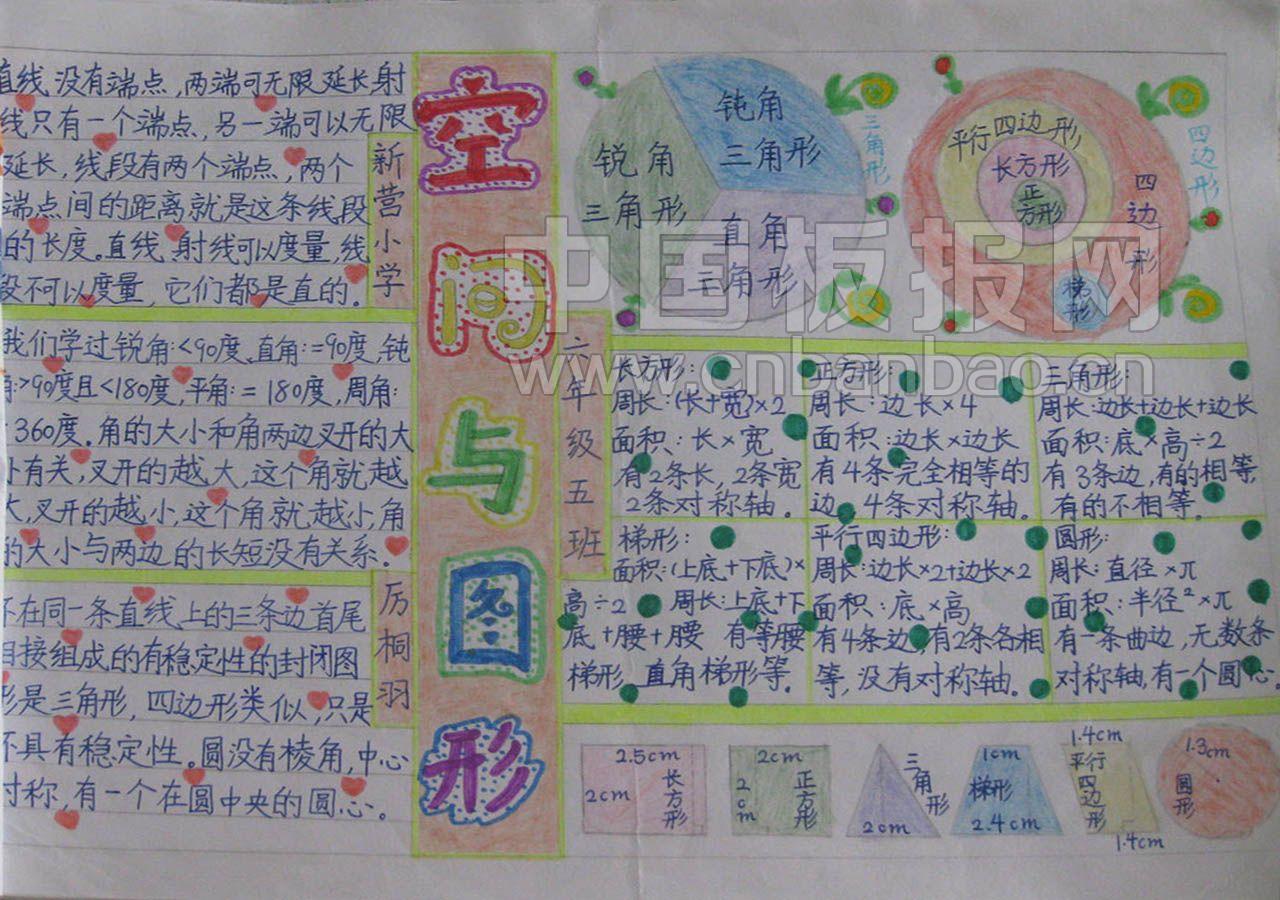 直线没有端点,两端可无限延长射
线只有一个端点,另一端可以无限
延长,线段有两个端点,两个
端点间的距离就是这条线段
的长度。直线,射线可以度量,线
段不可以度量,它们都是直的。
我们学过锐角:<90度,直角:=90度,钝
角:>90度且<180度,平角:=180度,周角
360度.角的大小和角两边叉开的大
小有关,叉开的越大,这个角就越
大,叉开的越小,这个角就越小,角
的大小与两边的长短没有关系.
不在同一条直线上的三条边首尾
相接组成的有稳定性的封闭图
形是三角形,四边形类似,只是
不具有稳定性。圆没有棱角,中心
对称,有一个在圆中央的圆心。
新营小学
厉桐羽
空间与图形
六年级五班
钝角
三角形
锐角
三角形
直角
三角形
三角形
平行四边形
长方形
正
方形
四边形
梯形
四边形
长方形:
周长:(长+宽)×2
面积:长×宽
有2条长,2条宽
2条对称轴。
正方形:
周长:边长×4
面积:边长×边长
有4条完全相等的
边,4条对称轴。
三角形:
周长:边长+边长+边长
面积:底×高÷2
有3条边,有的相等,
有的不相等。
梯形:
面积:(上底+下底)×
高÷2 周长:上底+下
底+腰+腰 有等腰
梯形,直角梯形等。
平行四边形:
周长:边长×2+边长×2
面积:底×高
有4条边,有2条各相
等,没有对称轴。
圆形:
周长:直径×π
面积:半径²×π
有一条曲边,无数条
对称轴,有一个圆心.
2.5cm
2cm
长方形
2cm
2cm
正方形
三角形
2cm
1cm
梯形
2.4cm
1.4cm
平行四边形
1.4cm
1.3cm
圆形
中国板报网
www.cnbanbao.cn